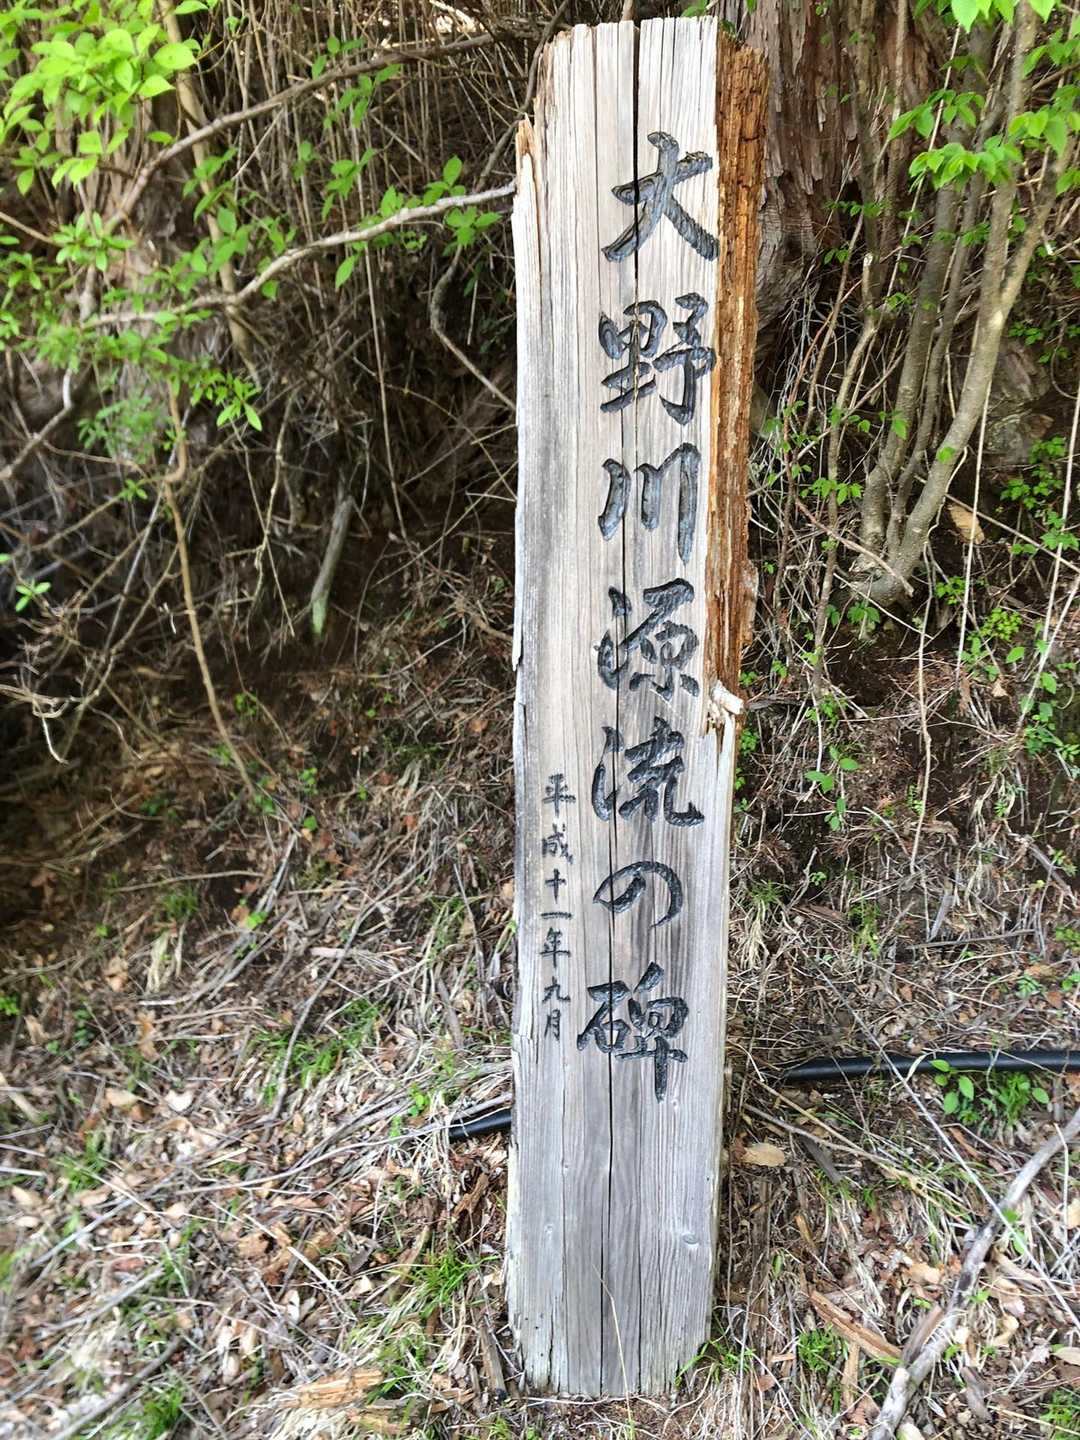 大野川源流の碑
平成十一年九月